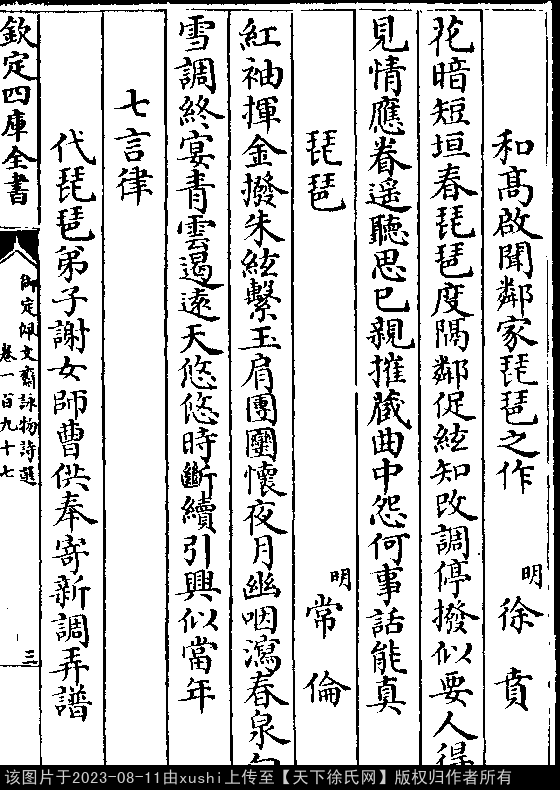 和高啟聞鄰家琵琶之作 明 徐賁
花暗短垣春琵琶度隔鄰促絃知改調停撥似要人得
見情應眷遥聽思已親摧藏曲中怨何事話能真
琵琶 明 常倫
紅袖揮金撥朱絃繫玉肩團圞懷夜月幽咽瀉春泉
雪調終宴青雲遏遠天悠悠時斷續引興似當年
七言律
代琵琶弟子謝女師曹供奉寄新調弄譜
欽定四庫全書
御定佩文齋詠物詩選
卷一百九十七
三
该图片于2023-08-11由xushi上传至【天下徐氏网】版权归作者所有